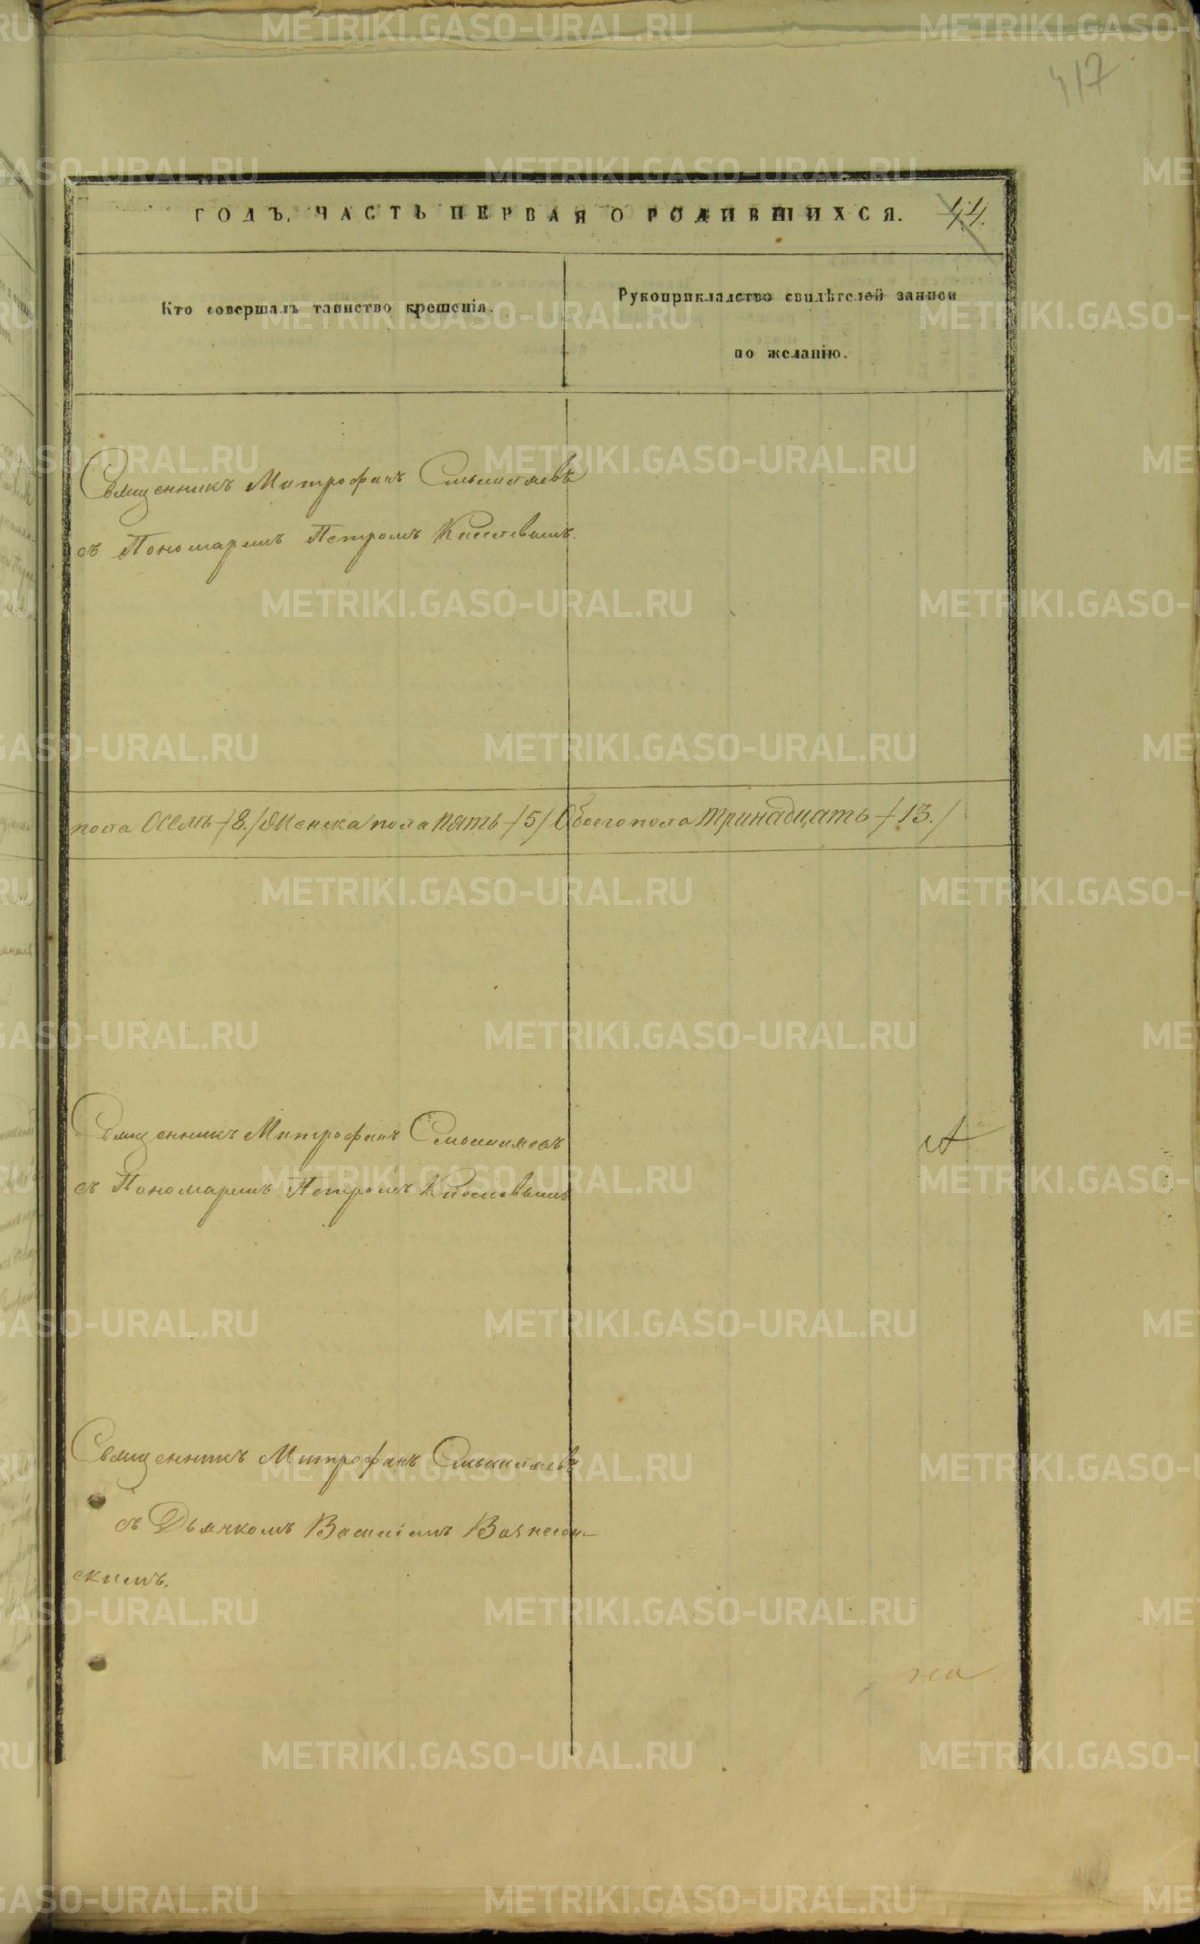 417
ГОДЪ, ЧАСТЬ ПЕРВАЯ О РОДИВШИХСЯ. 44.
Кто совершалъ таинство крещенія.
Рукоприкладство свидѣтелей записи
по желанію.
Священникъ Митрофанъ
съ Пономаремъ Петромъ Киселевымъ.
пола Осемь /8./ Женска пола пять /5/ Обоего пола тринадцать /13./
Священникъ Митрофанъ
съ Пономаремъ Петромъ Киселевымъ
Священникъ Митрофанъ
съ Дьячкомъ Василіемъ Вознесен-
скимъ.
METRIKI.GASO-URAL.RU